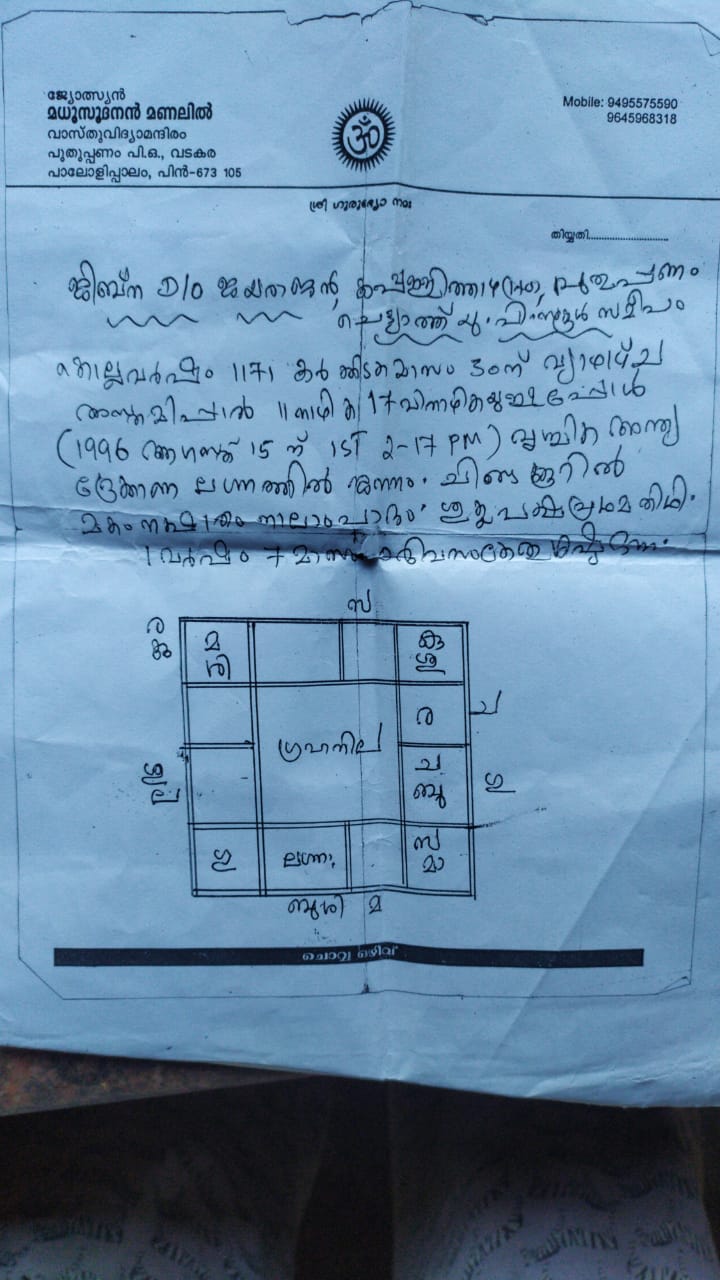 ജ്യോത്സ്യൻ
മധുസൂദനൻ മണലിൽ
വാസ്തുവിദ്യാമന്ദിരം
പുതുപ്പണം പി.ഒ., വടകര
പാലോളിപ്പാലം, പിൻ-673 105
ॐ
Mobile: 9495575590
9645968318
ശ്രീ ഗുരുഭ്യോ നമഃ
തിയ്യതി............................
ജിബ്ന D/O ജയരാജൻ, പുതുപ്പണം
സമീപം
കൊല്ലവർഷം 1171 കർക്കിടകമാസം 30ന് വ്യാഴാഴ്ച
അസ്തമിപ്പാൻ 11 നാഴിക 17 വിനാഴികയുള്ളപ്പോൾ
(1996 ആഗസ്ത് 15 ന് IST 2-17 PM) വൃശ്ചിക അന്ത്യ
ദ്രേക്കാണ ലഗ്നത്തിൽ ജനനം. ചിങ്ങക്കൂറിൽ
മകം നക്ഷത്രം നാലാംപാദം. ശുക്ലപക്ഷപ്രഥമ തിഥി.
1 വർഷം 7 മാസം
സ
ര
മ
ശി
കു
ശു
ര
ച
ഗ്രഹനില
ച
ബു
ഗു
ശു
ല
ഗു
ലഗ്നം
സ
മാ
ബു ശി മ
ചൊവ്വ ഒഴിവ്